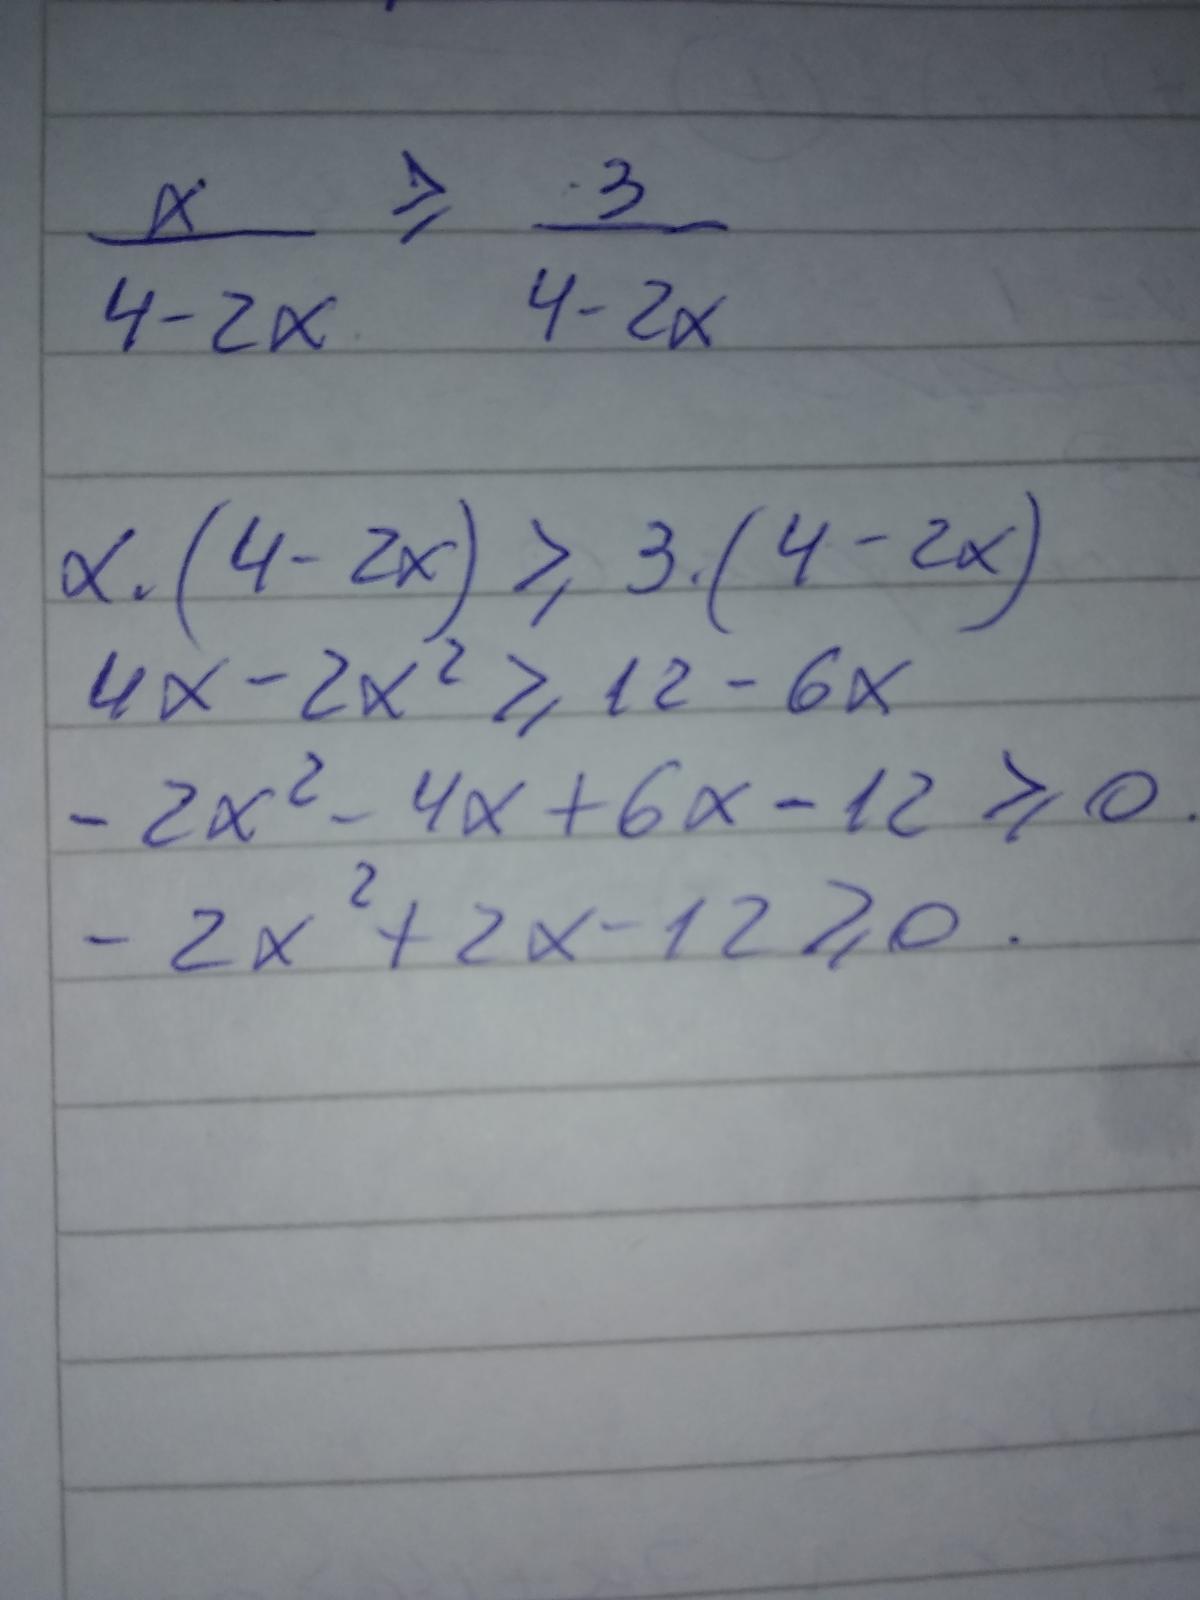 x/(4-2x) ⩾ 3/(4-2x)
x.(4-2x) ⩾ 3.(4-2x)
4x-2x² ⩾ 12-6x
-2x²-4x+6x-12 ⩾ 0.
-2x²+2x-12 ⩾ 0.